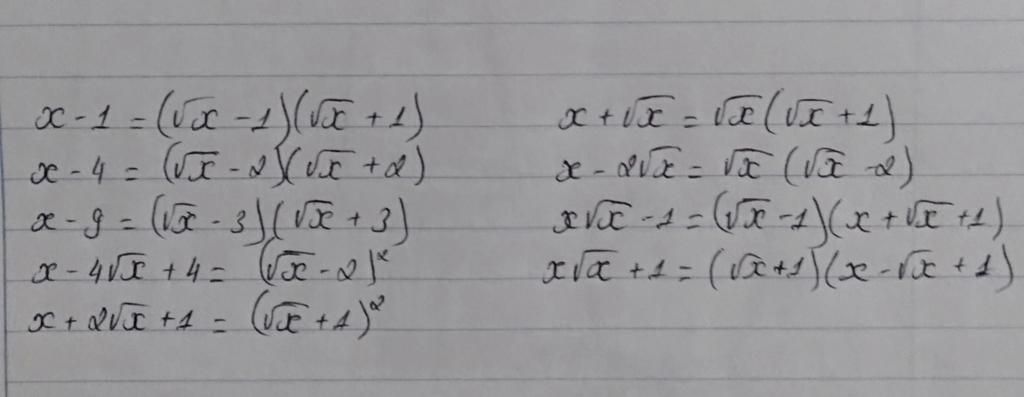 x - 1 = (√x - 1)(√x + 1)
x - 4 = (√x - 2)(√x + 2)
x - 9 = (√x - 3)(√x + 3)
x - 4√x + 4 = (√x - 2)²
x + 2√x + 1 = (√x + 1)²
x + √x = √x(√x + 1)
x - 2√x = √x (√x - 2)
x√x - 1 = (√x - 1)(x + √x + 1)
x√x + 1 = (√x + 1)(x - √x + 1)